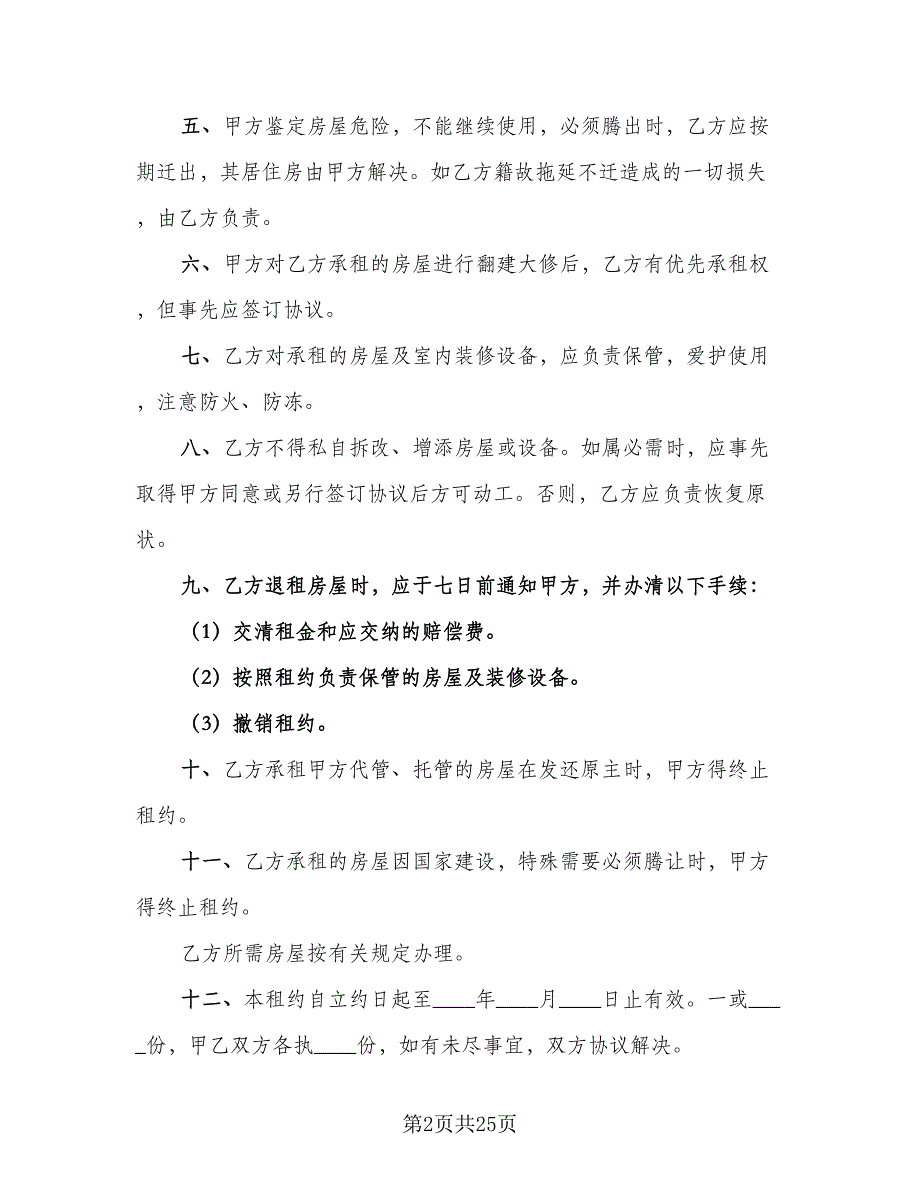 五、甲方鉴定房屋危险，不能继续使用，必须腾出时，乙方应按
期迁出，其居住房由甲方解决。如乙方籍故拖延不迁造成的一切损失
，由乙方负责。
六、甲方对乙方承租的房屋进行翻建大修后，乙方有优先承租权
，但事先应签订协议。
七、乙方对承租的房屋及室内装修设备，应负责保管，爱护使用
，注意防火、防冻。
八、乙方不得私自拆改、增添房屋或设备。如属必需时，应事先
取得甲方同意或另行签订协议后方可动工。否则，乙方应负责恢复原
状。
九、乙方退租房屋时，应于七日前通知甲方，并办清以下手续：
（1）交清租金和应交纳的赔偿费。
（2）按照租约负责保管的房屋及装修设备。
（3）撤销租约。
十、乙方承租甲方代管、托管的房屋在发还原主时，甲方得终止
租约。
十一、乙方承租的房屋因国家建设，特殊需要必须腾让时，甲方
得终止租约。
乙方所需房屋按有关规定办理。
十二、本租约自立约日起至____年____月____日止有效。一或___
_份，甲乙双方各执____份，如有未尽事宜，双方协议解决。
第2页共25页